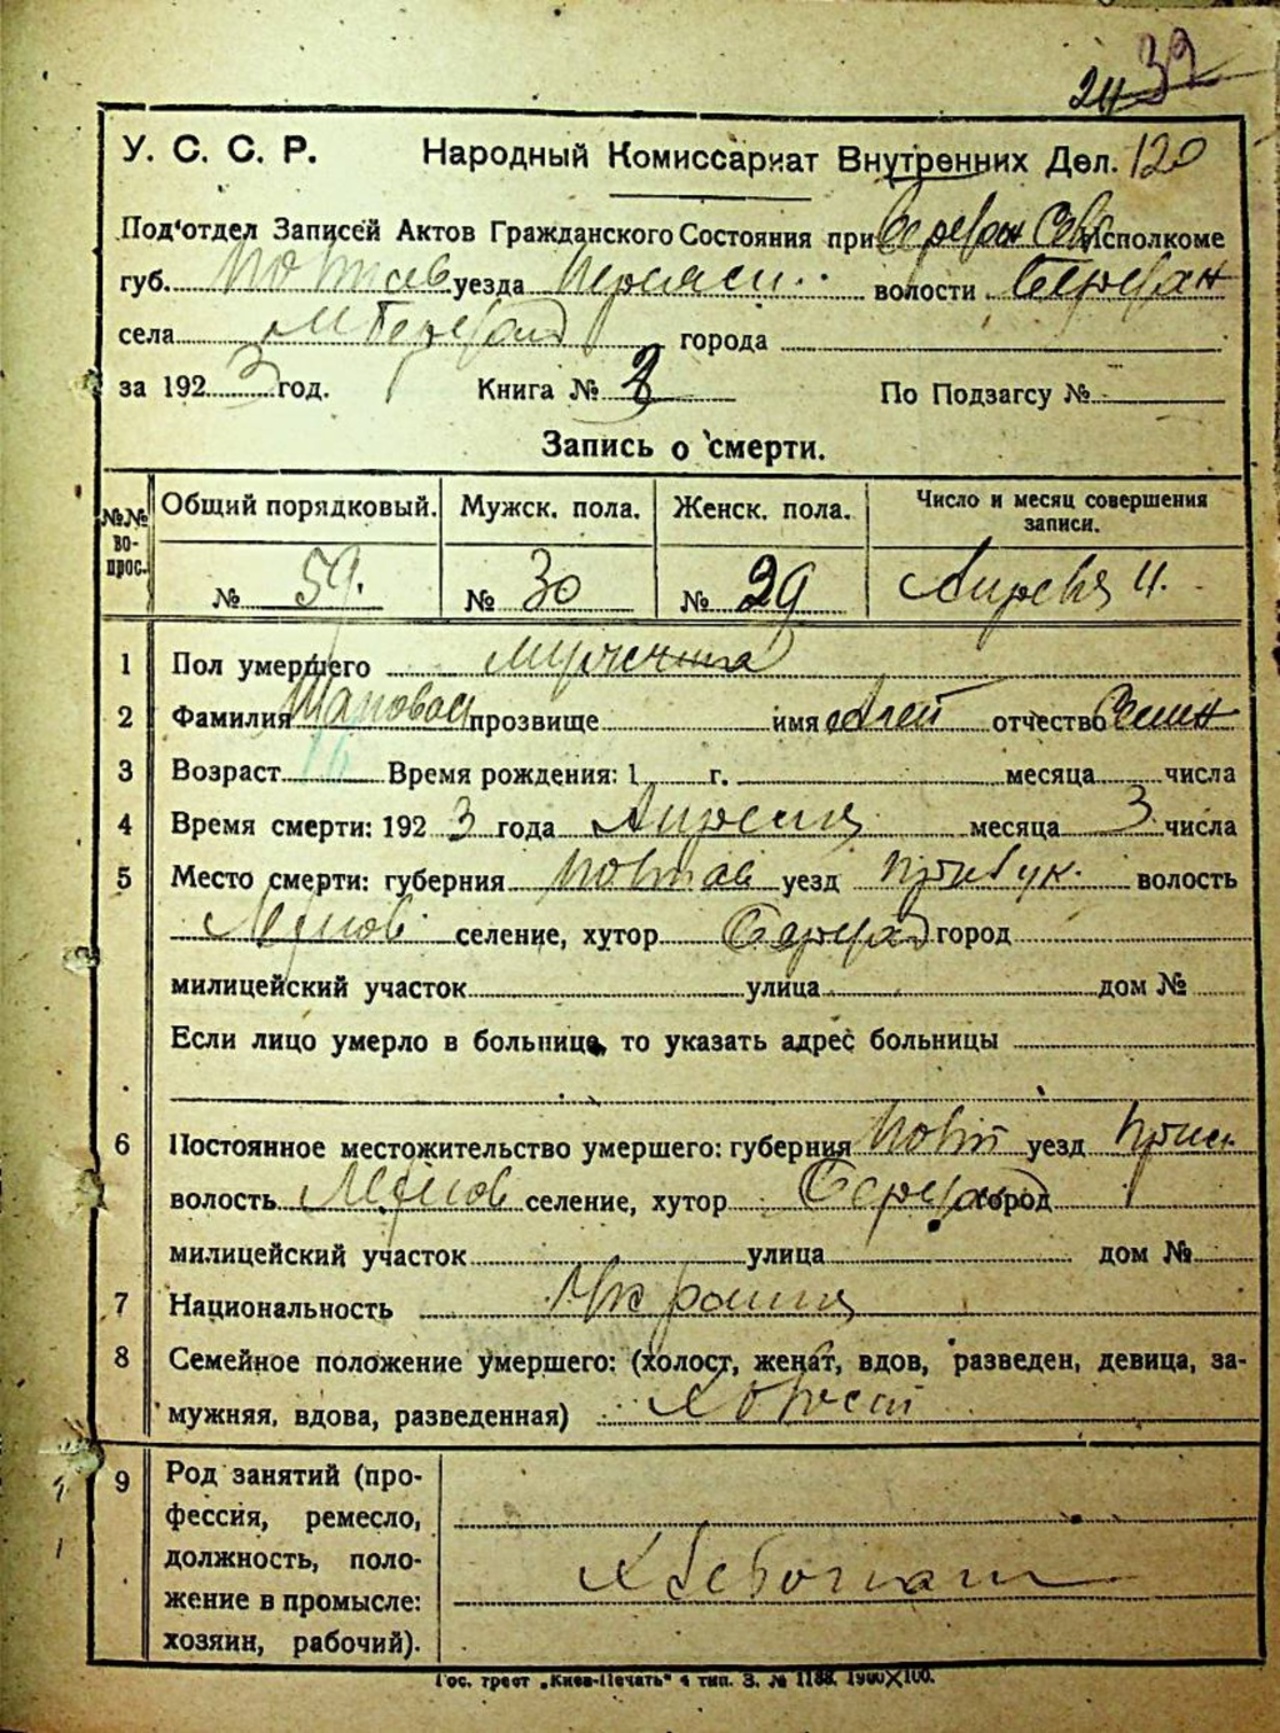 24 39
У. С. С. Р. Народный Комиссариат Внутренних Дел. 120
Под‘отдел Записей Актов Гражданского Состояния при Исполкоме
губ. Полтав уезда Переясл. волости Березан
села М Березань города
за 192 3 год. Книга № По Подзагсу №
Запись о смерти.
№№ во-прос. Общий порядковый. Мужск. пола. Женск. пола. Число и месяц совершения записи.
№ 59. № 30 № 29 Апреля 4.
1 Пол умершего мужчина
2 Фамилия Шаповал прозвище имя отчество Семен
3 Возраст 16 Время рождения: 1 г. месяца числа
4 Время смерти: 192 3 года Апреля месяца 3 числа
5 Место смерти: губерния Полтав уезд волость
селение, хутор город
милицейский участок улица дом №
Если лицо умерло в больнице, то указать адрес больницы
6 Постоянное местожительство умершего: губерния Полт уезд
волость селение, хутор город
милицейский участок улица дом №
7 Национальность Украинец
8 Семейное положение умершего: (холост, женат, вдов, разведен, девица, за-
мужняя, вдова, разведенная) Холост
9 Род занятий (про-
фессия, ремесло,
должность, поло-
жение в промысле: Хлебопаш
хозяин, рабочий).
Гос. трест „Киев-Печать“ 4 тип. З. № 1188. 1900✕100.